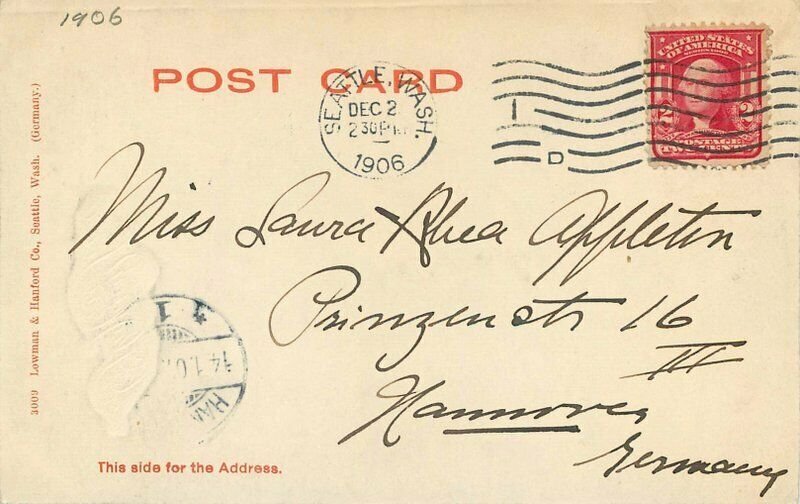 1906
POST CARD
SEATTLE, WASH.
DEC 2
2 30 P M
1906
D
UNITED STATES
OF AMERICA
SERIES 1902
2 2
POSTAGE
TWO CENTS
Miss Laura Rhea Appleton
Prinzenstr 16
III
Hannover
Germany
3009 Lowman & Hanford Co., Seattle, Wash. (Germany.)
This side for the Address.